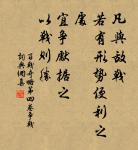 凡與敵戰
若有形勢便利之
處
宜爭獻據之
以戰則勝
百戰奇略第四卷爭戰
詞典網集